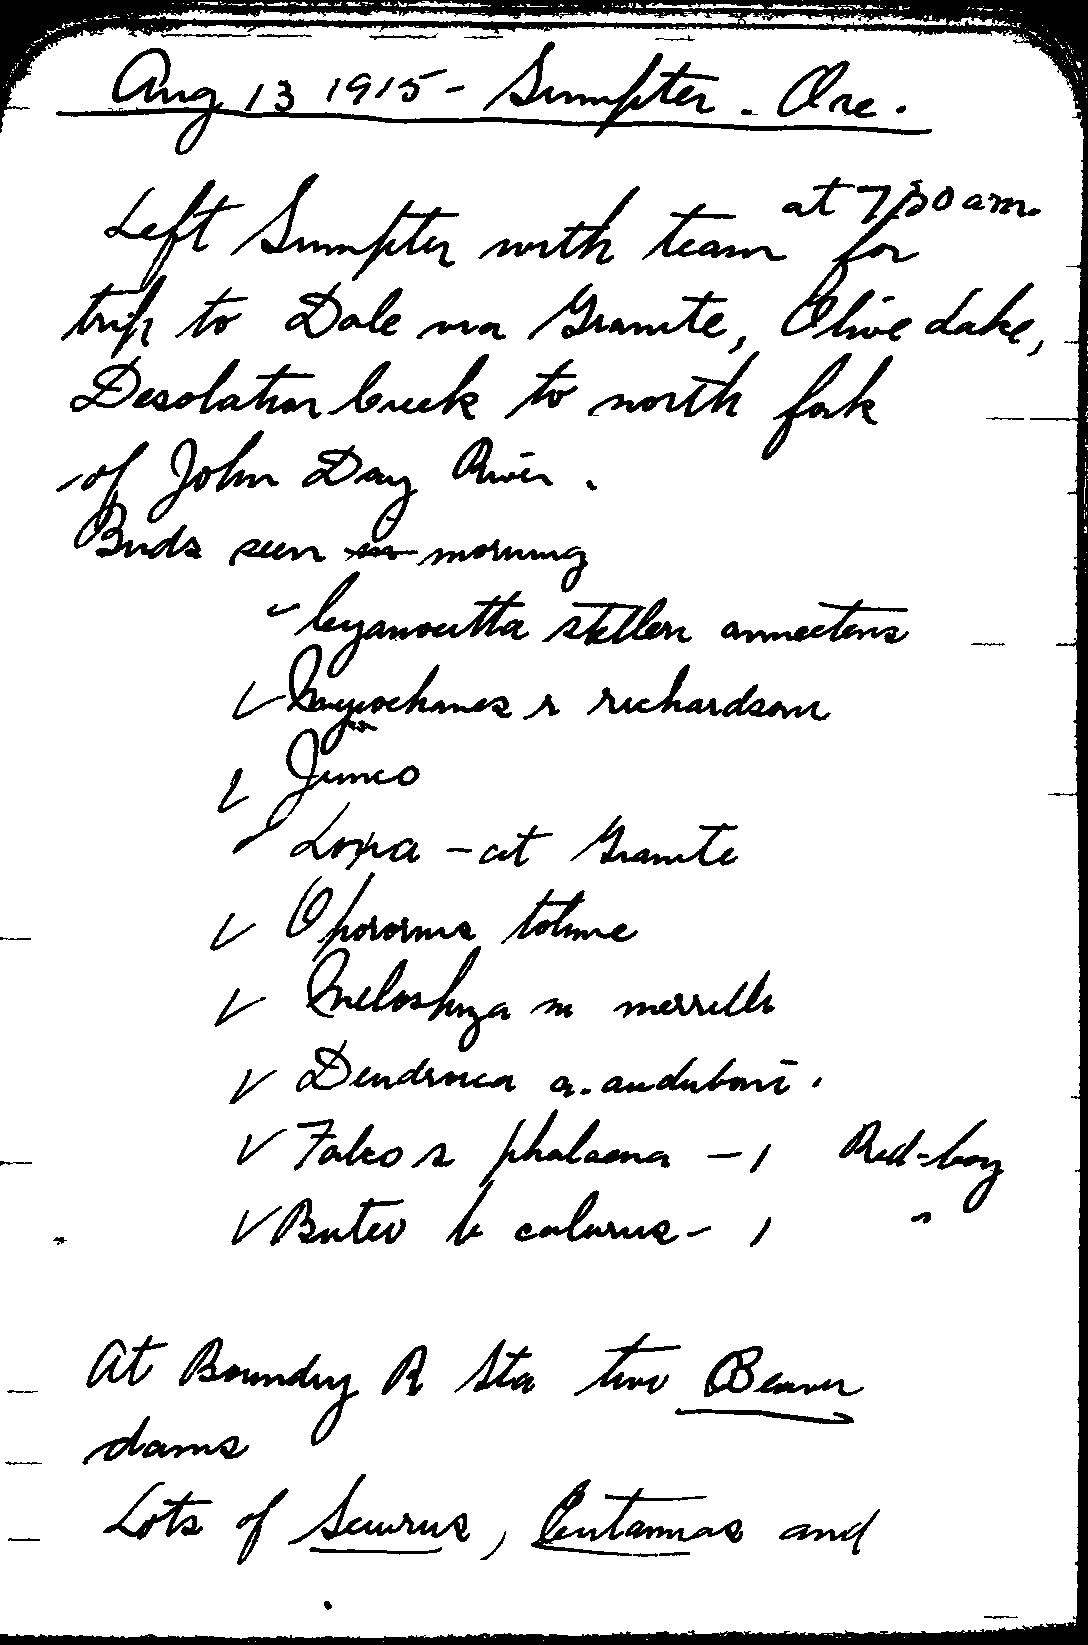 Aug 13 1915 - Sumpter - Ore.
at 7:30 am.
Left Sumpter with team for
trip to Dale via Granite, Olive Lake,
Desolation Creek to north fork
of John Day River.
Birds seen in morning
Cyanocitta stelleri annectens
Myiochanes r richardsoni
Junco
Loxia - at Granite
Oporornis tolmiei
Melospiza m merrilli
Dendroica a. auduboni.
Falco s phalaena - 1 Red-boy
Buteo b calurus - 1 "
At Boundry R Sta two Beaver
dams
Lots of Sciurus, Eutamias and